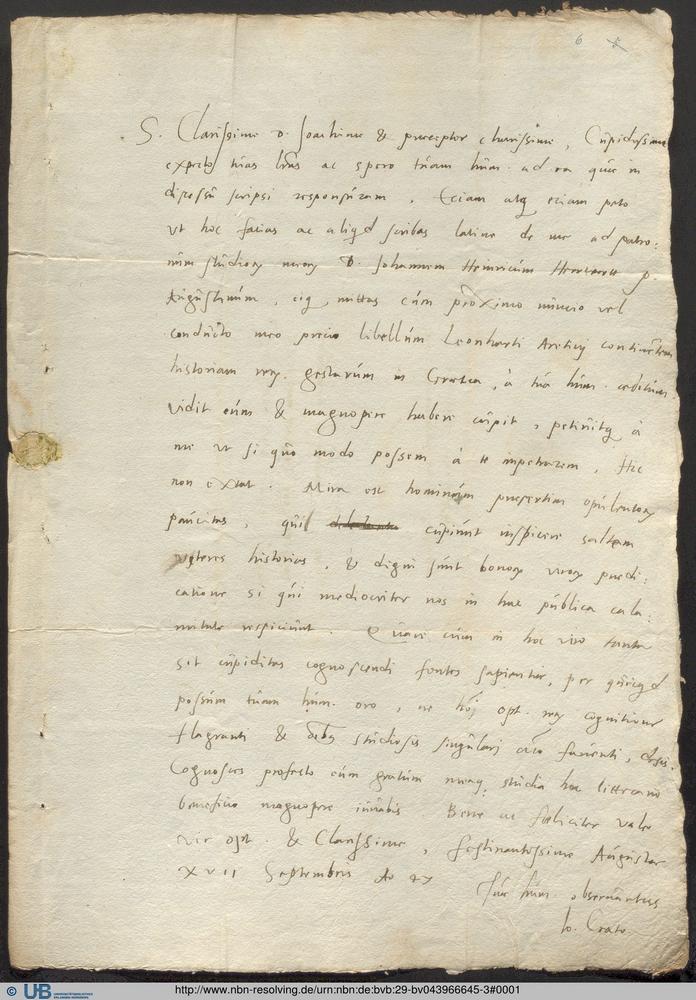 6
S. Clarissime D. Joachime & praeceptor charissime, Cupidissime
expecto tuas lras ac spero tuam hum. ad ea quae in
discessu scripsi responsuram. Eciam atq eciam peto
Vt hoc facias ac aliqd scribas latine de me ad patro:
num studiorum meorum D. Johannem Heinricum Herwart p.
Augustanum, eiq mittas cum proximo nuncio vel
conducto meo precio libellum Leonharti Aretini continentem
historiam rerum gestarum in Graecia, à tua hum. aeditum
Vidit eum & magnopere habere cupit, petiuitq à
me vt si quo modo possem à te impetrarem, Hic
non extat. Mira est hominum praesertim opulentorum
paucitas, qui cupiunt inspicere saltem
veteres historias, & digni sunt bonorum virorum praedi:
catione si qui mediocriter nos in hac publica cala:
mitate respiciunt. Quare cum in hoc viro tanta
sit cupiditas cognoscendi fontes sapientiae, per quicqd
possum tuam hum. oro, ne hoi opt. rerum cognitione
flagranti & studiosis singulari faventi, desis.
Cognosces profecto eum gratum meaq. studia hoc litterario
beneficio magnopere iuvabis. Bene ac foeliciter vale
vir opt. & Clarissime, festinantissime Augustae
XVII Septembris Ao 47 Tuae hum. observantiss
Io. Crato
© UB UNIVERSITÄTSBIBLIOTHEK ERLANGEN-NÜRNBERG http://www.nbn-resolving.de/urn:nbn:de:bvb:29-bv043966645-3#0001